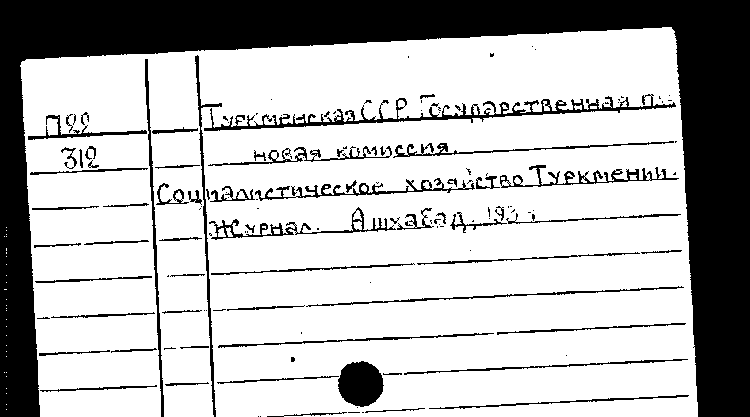 П22 Туркменская ССР. Государственная пла-
312 новая комиссия.
Социалистическое хозяйство Туркмении.
Журнал. Ашхабад,